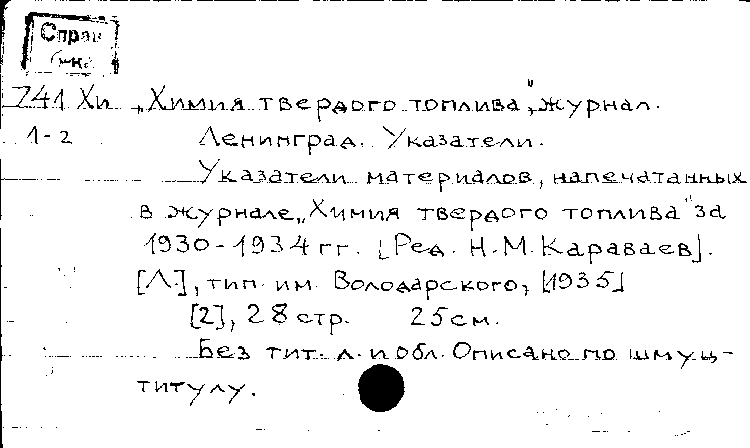 Справ
741 Хи „Химия твердого топлива", журнал.
1-2 Ленинград. Указатели.
Указатели материалов, напечатанных
в журнале „Химия твердого топлива" за
1930-1934 гг. [Ред. Н.М. Караваев].
[Л.], тип. им. Володарского, [1935]
[2], 28 стр. 25 см.
Без тит. л. и обл. Описано по шмуц-
титулу.